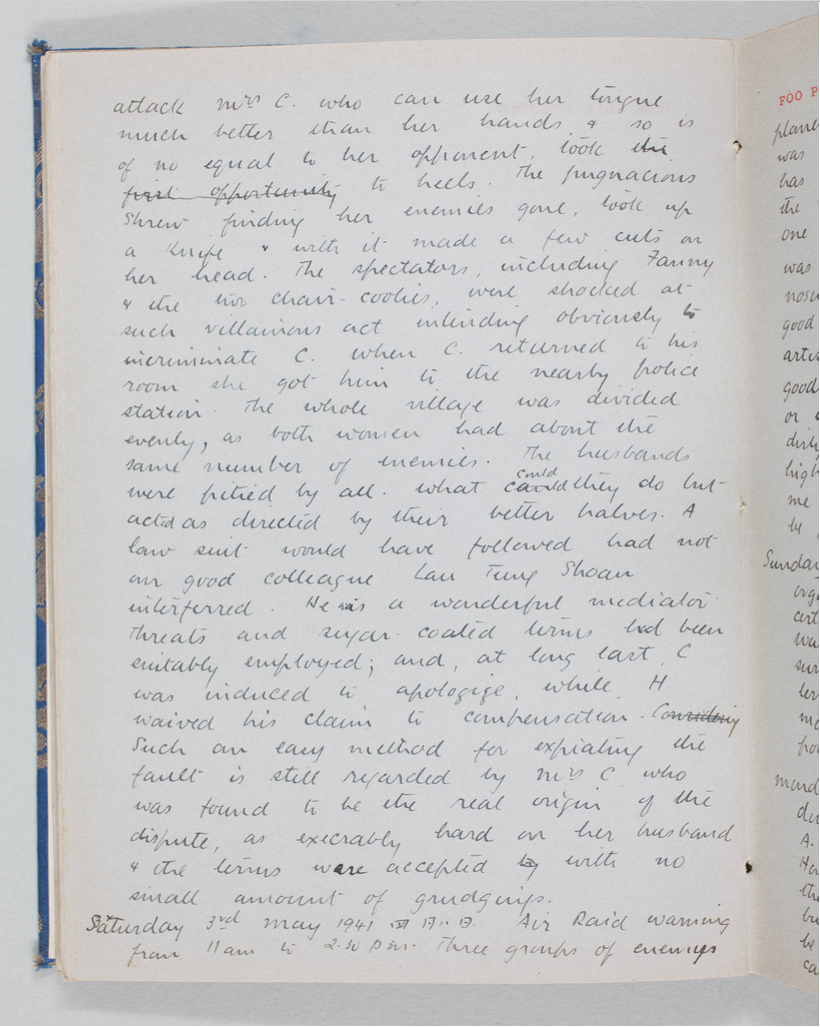 attack Mrs C. who can use her tongue
much better than her hands, & so is
of no equal to her opponent, took the
first opportunity to heels. The pugnacious
Shrew finding her enemies gone, took up
a Knife & with it made a few cuts on
her head. The spectators, including Fanny
& the two chair-coolies, were shocked at
such villainous act intending obviously to
incriminate C. when C. returned to his
room she got him to the nearby police
station. The whole village was divided
evenly, as both women had about the
same number of enemies. The husbands
could
were pitied by all. What they do but
acted as directed by their better halves. A
law suit would have followed had not
our good colleague Lau Tung Shoan
interferred. He is a wonderful mediator
Threats and sugar-coated terms had been
suitably employed; and, at long last, C
was induced to apologize, while H
waived his claim to compensation. Considering
Such an easy method for expiating the
fault is still regarded by Mrs C. who
was found to be the real origin of the
dispute, as execrably hard on her husband
& the terms were accepted by with no
small amount of grudgings.
Saturday 3rd May 1941 Air Raid warning
from 11 am to 2.30 p.m. Three groups of enemys
FOO P
was
has
the
one
was
good
good
or
me
be
Sunday
A.